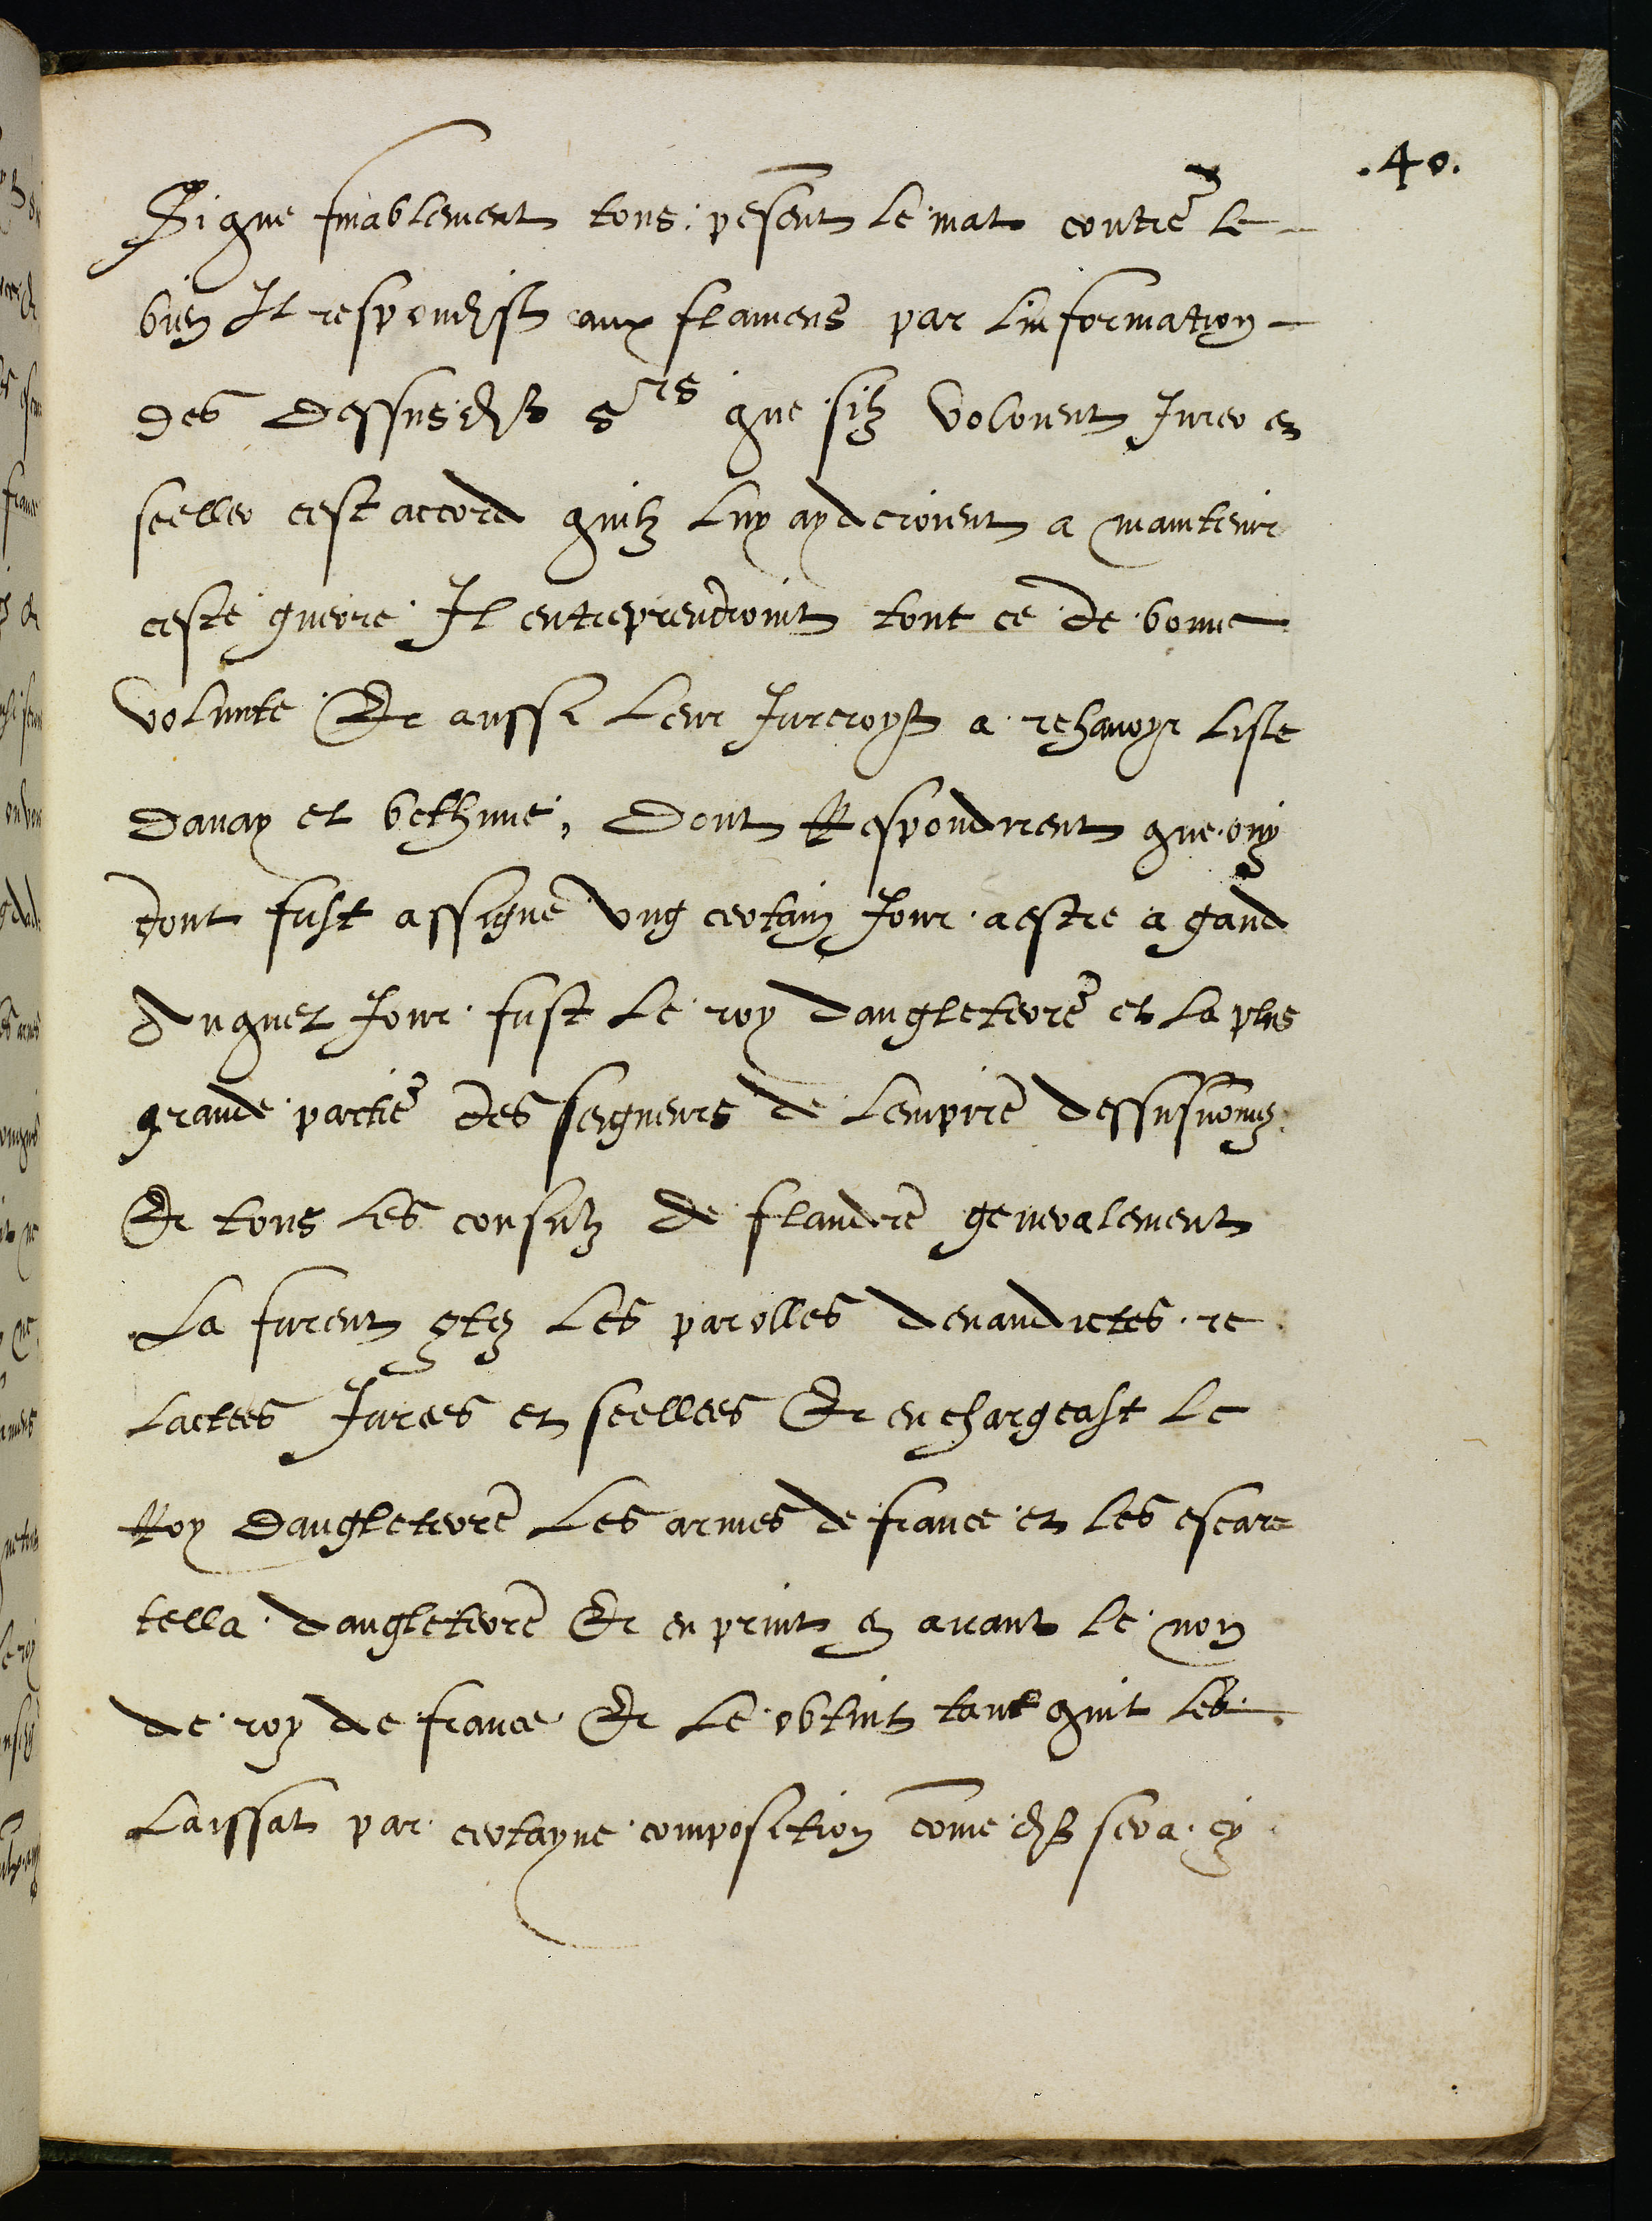 .40.
Si que finablement tous pesent le mat contre le
bien Il respondist aux flamens par linformation
des dessusdist Srs que silz volouent Jurer et
seeller cest accord quilz luy ayderoient a maintenir
ceste guerre Il entreprendroint tout ce de bonne
volunte Et aussi leur Jureroyst a rehavoyr lisle
Dauay et bethune, Dont Respondirent que ouy
dont fust assigne ung certain Jour a estre a gand
Auquel Jour fust le roy dangleterre et la plus
grande partie des seigneurs de lempire dessusnomez
Et tous les consulz de flandre generalement
La furent les parolles devandictes re
lactees Jurees et seellees Et enchargeast le
Roy Dangleterre les armes de france et les escare
tella dangleterre Et en print en avant le non
de roy de france Et le obtint tant quil les
laissat par certayne composition come dist sera cy